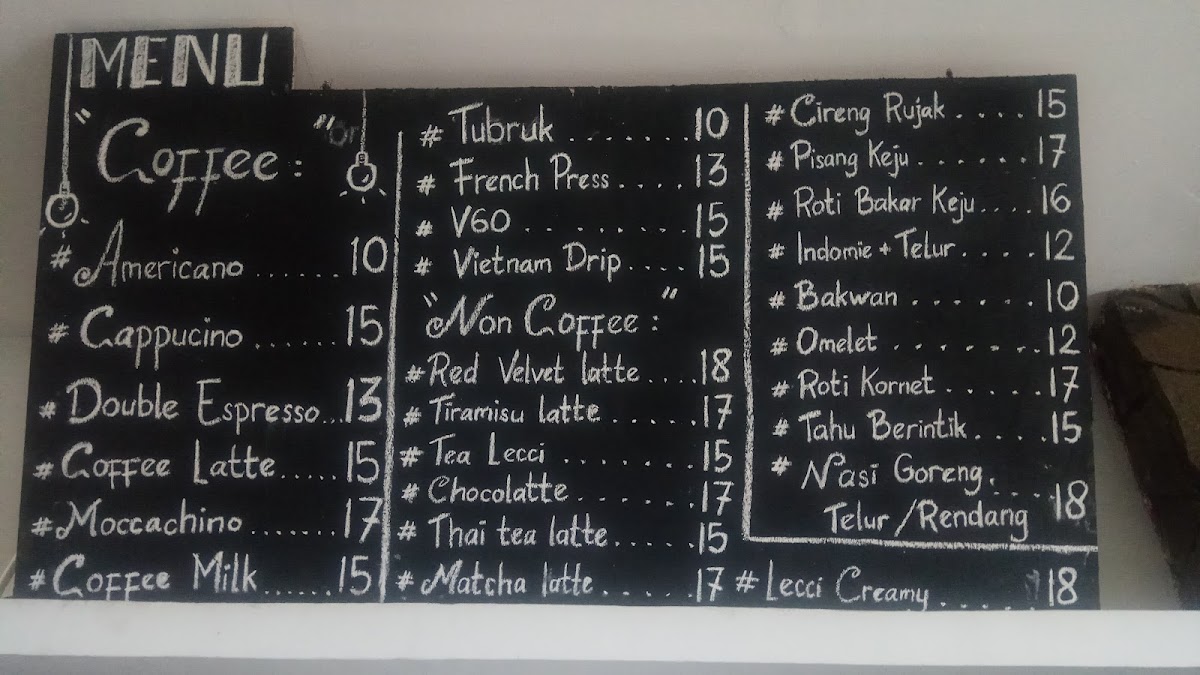 MENU
"Coffee:"
# Americano ....... 10
# Cappucino ....... 15
# Double Espresso... 13
# Coffee Latte..... 15
# Moccachino ....... 17
# Coffee Milk...... 15
# Tubruk ........ 10
# French Press.... 13
# V60 ........ 15
# Vietnam Drip.... 15
"Non Coffee:"
# Red Velvet latte .... 18
# Tiramisu latte ...... 17
# Tea Lecci ........ 15
# Chocolatte....... 17
# Thai tea latte...... 15
# Matcha latte ...... 17
# Cireng Rujak .... 15
# Pisang Keju ....... 17
# Roti Bakar Keju.... 16
# Indomie + Telur .... 12
# Bakwan ...... 10
# Omelet ........ 12
# Roti Kornet ..... 17
# Tahu Berintik..... 15
# Nasi Goreng.
Telur/Rendang .... 18
# Lecci Creamy...... 18